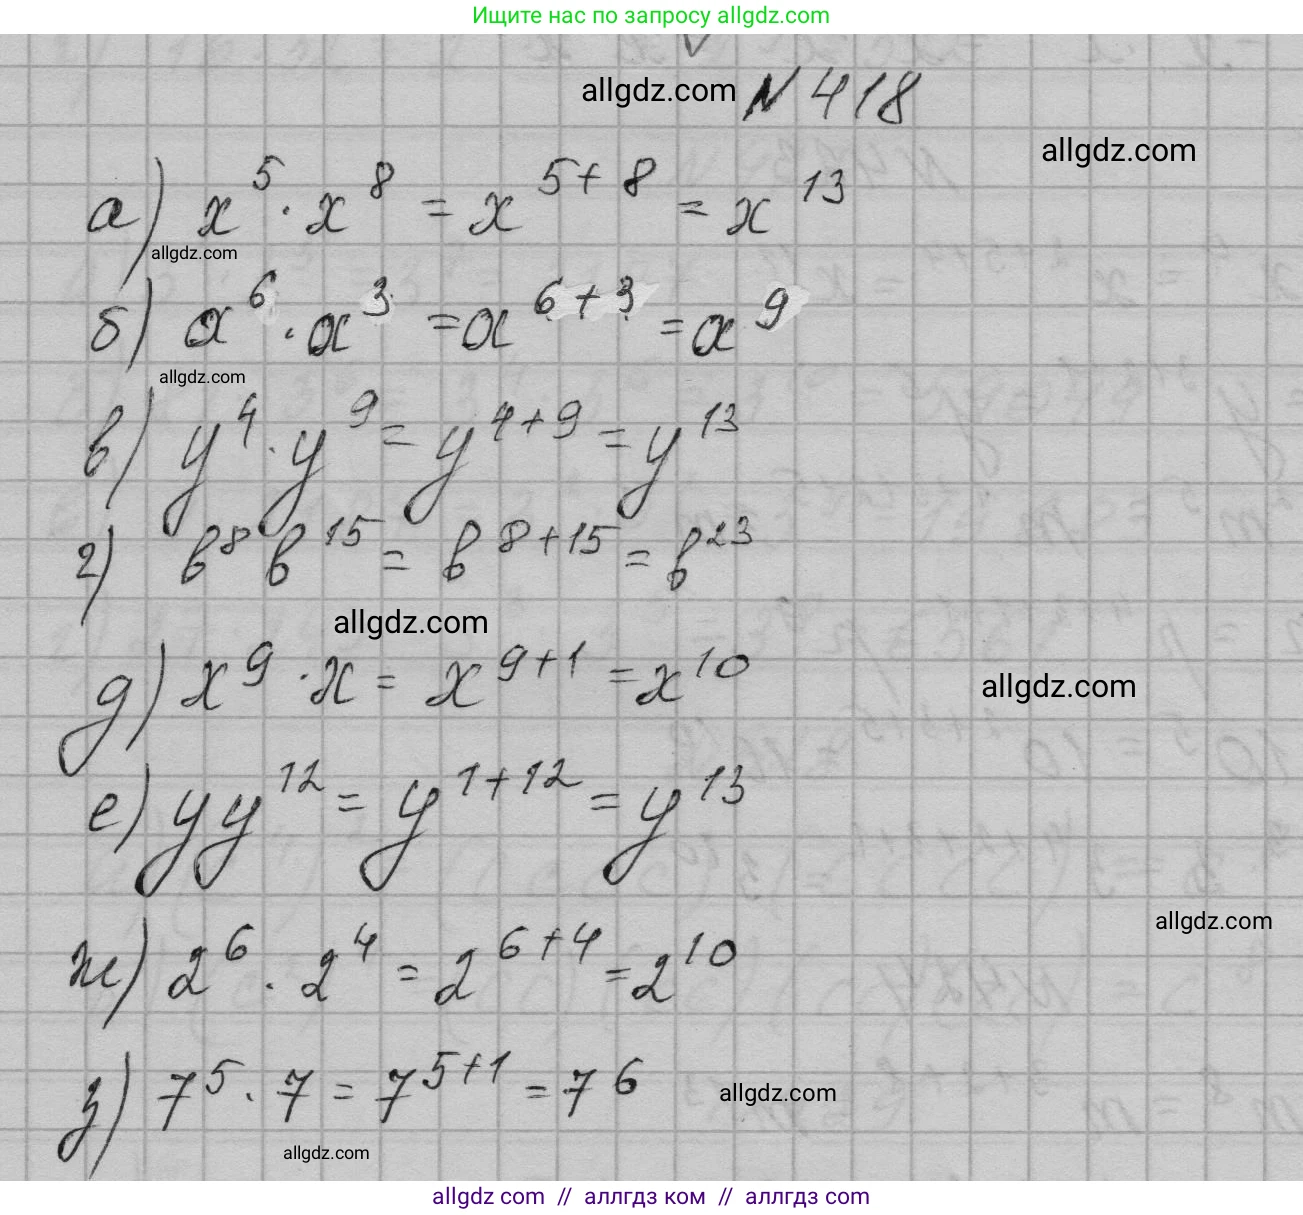 Ищите нас по запросу allgdz.com
allgdz.com N 418
allgdz.com
а) x⁵ · x⁸ = x⁵⁺⁸ = x¹³
allgdz.com
б) a⁶ · a³ = a⁶⁺³ = a⁹
allgdz.com
в) y⁴ · y⁹ = y⁴⁺⁹ = y¹³
г) b⁸ b¹⁵ = b⁸⁺¹⁵ = b²³
allgdz.com
д) x⁹ · x = x⁹⁺¹ = x¹⁰
allgdz.com
е) y y¹² = y¹⁺¹² = y¹³
allgdz.com
ж) 2⁶ · 2⁴ = 2⁶⁺⁴ = 2¹⁰
з) 7⁵ · 7 = 7⁵⁺¹ = 7⁶
allgdz.com
allgdz.com
allgdz com // аллгдз ком // аллгдз com